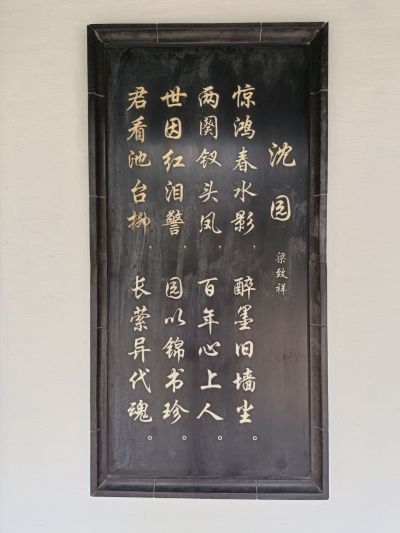 沈园
梁致祥
惊鸿春水影，醉墨旧墙尘。
两阕钗头凤，百年心上人。
世因红泪警，园以锦书珍。
君看池台柳，长萦异代魂。